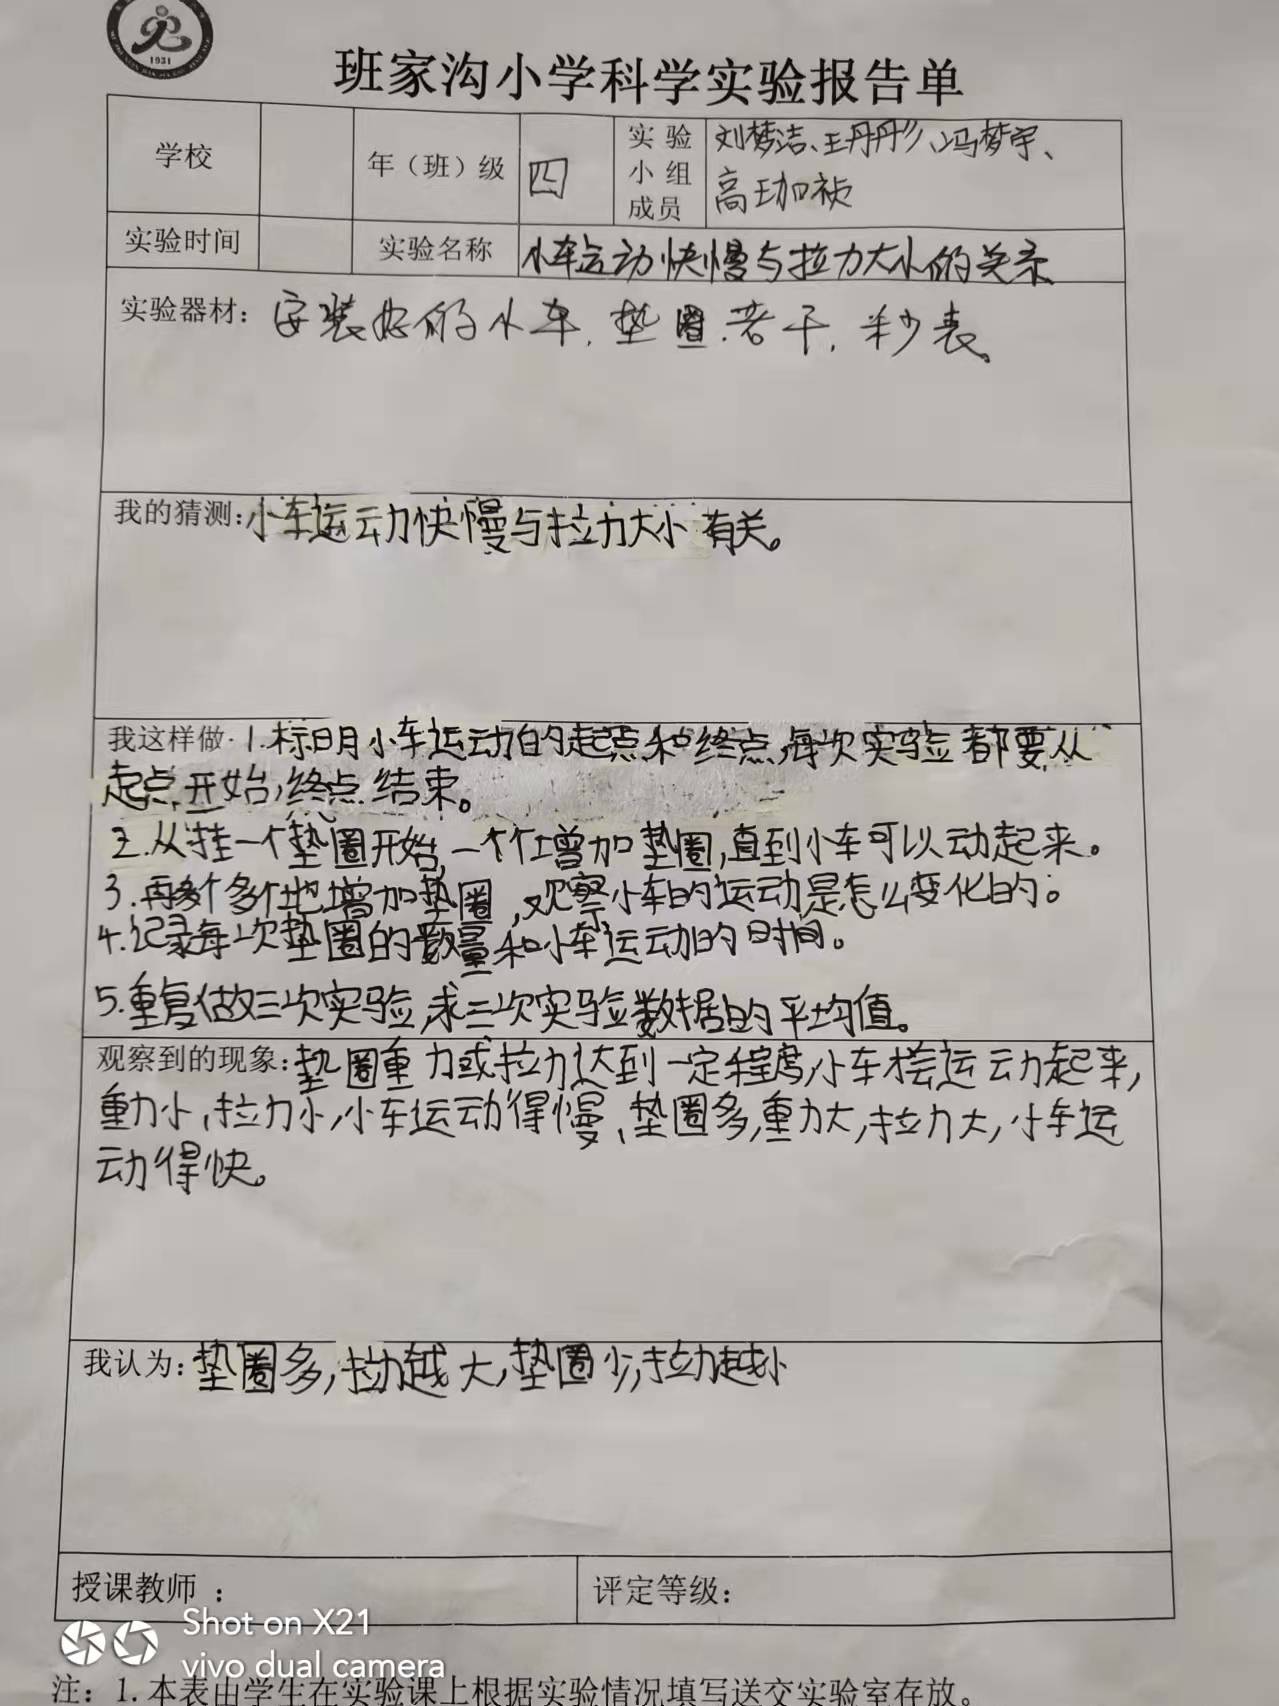 1931
班家沟小学科学实验报告单
学校
年（班）级
四
实验小组成员
刘梦洁、王丹丹、冯梦宇、
高珈祯
实验时间
实验名称
小车运动快慢与拉力大小的关系
实验器材：安装好的小车，垫圈若干，秒表。
我的猜测：小车运动快慢与拉力大小有关。
我这样做：1.标明小车运动的起点和终点，每次实验都要从
起点开始，终点结束。
2.从挂一个垫圈开始，一个个增加垫圈，直到小车可以动起来。
3.再多个多个地增加垫圈，观察小车的运动是怎么变化的。
4.记录每次垫圈的数量和小车运动的时间。
5.重复做三次实验，求三次实验数据的平均值。
观察到的现象：垫圈重力或拉力达到一定程度，小车才会运动起来，
重力小，拉力小，小车运动得慢、垫圈多，重力大，拉力大，小车运
动得快。
我认为：垫圈多，拉力越大，垫圈少，拉力越小
授课教师：
评定等级：
Shot on X21
vivo dual camera
注：1.本表由学生在实验课上根据实验情况填写送交实验室存放。